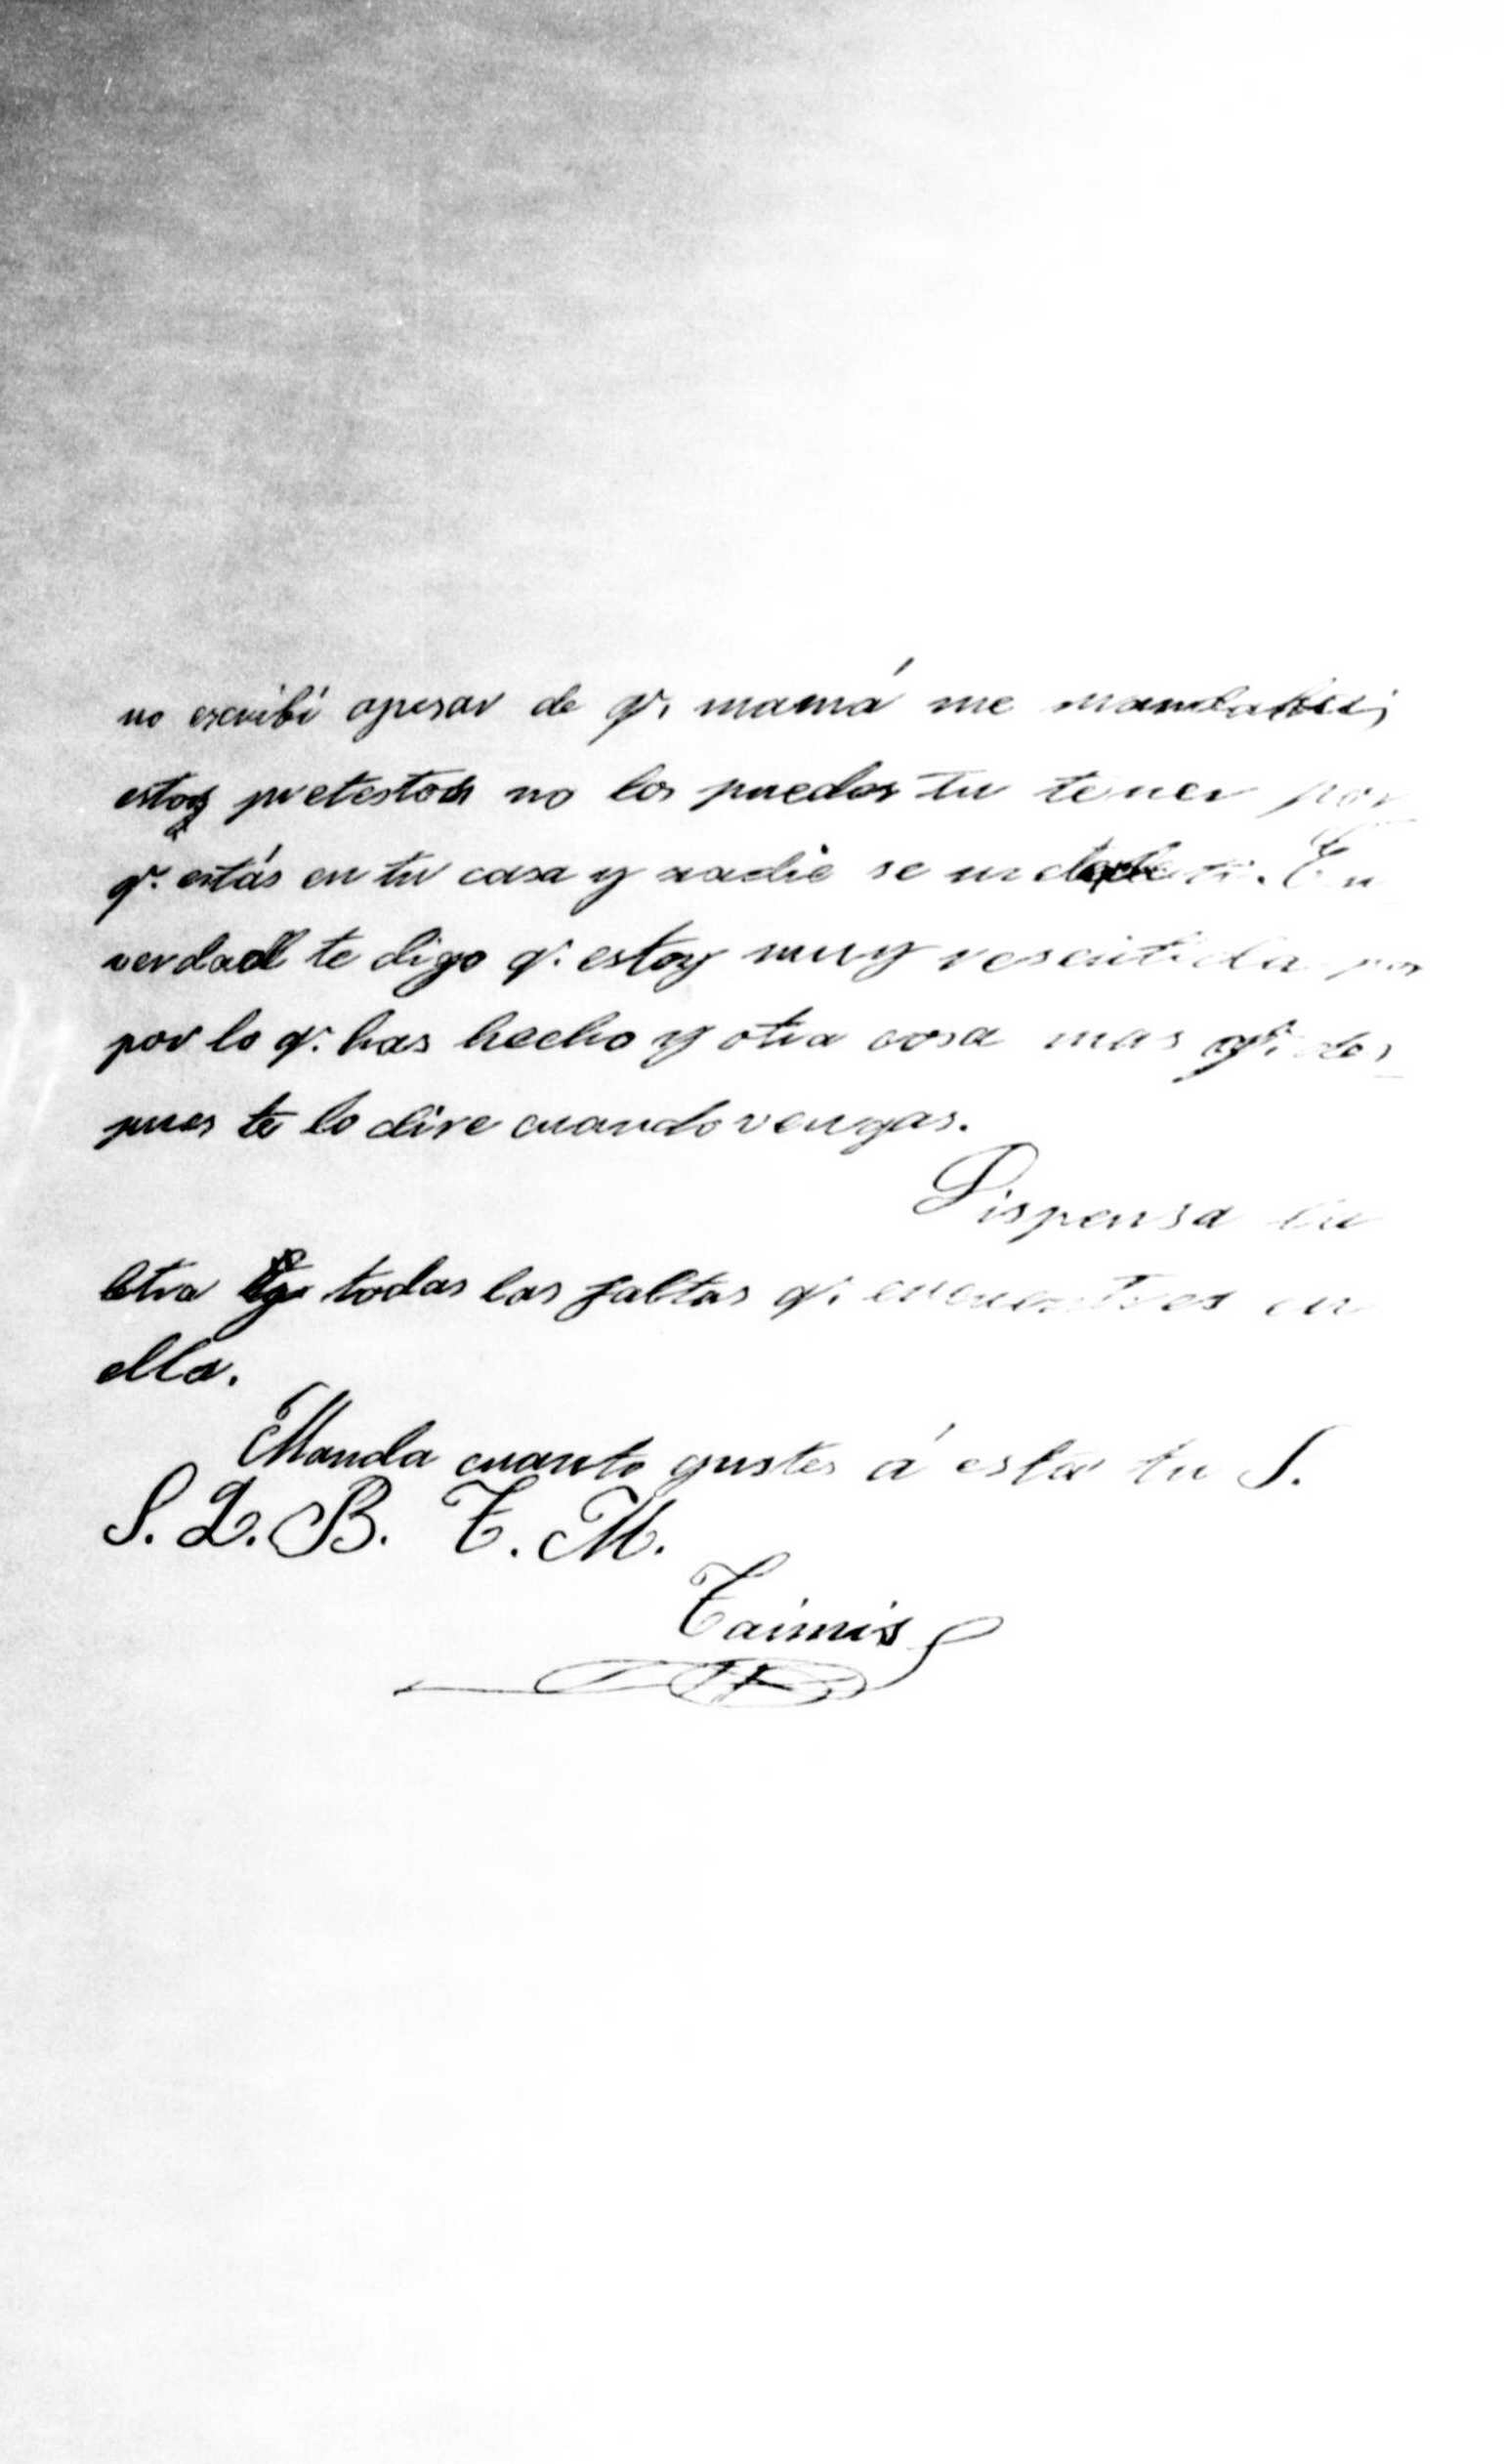 no escribí apesar de q. mamá me mandaba;
estos pretestos no los puedes tu tener por
q. estás en tu casa y nadie se mete ti. En
verdad te digo q. estoy muy resentida por
por lo q. has hecho y otra cosa mas q. des
pues te lo dire cuando vengas.
Dispensa la
letra y todas las faltas q. encuentres en
ella.
Manda cuanto gustes á esta tu S.
S. Q. B. T. M.
Taimis